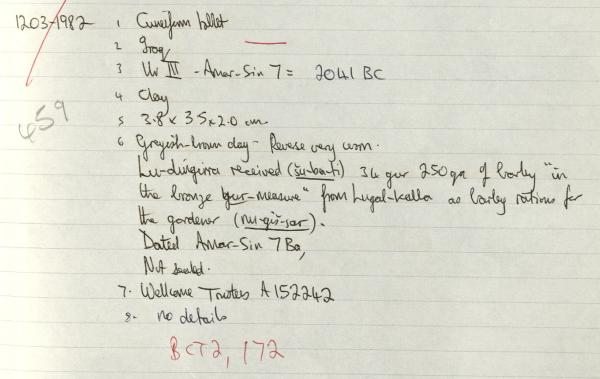 1203-1982 1 Cuneiform tablet
2 Iraq
3 Ur III - Amar-Sin 7 = 2041 BC
4 Clay
459
5 3.8 x 3.5 x 2.0 cm
6 Greyish-brown clay - Reverse very worn.
Lu-dingirra received (šu-ba-ti) 34 gur 250 qa of barley "in
the bronze gur-measure" from Lugal-kalla as barley rations for
the gardener (nu-giš-sar).
Dated Amar-Sin 7
Not sealed.
7. Wellcome Trustees A 152242
8. no details
BCT2, 172